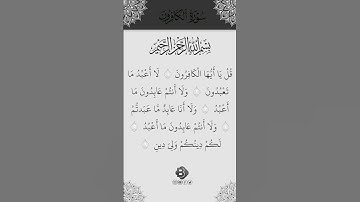 سُورَةُ الكَافِرُونَ
بِسْمِ اللَّهِ الرَّحْمَٰنِ الرَّحِيمِ
قُلْ يَا أَيُّهَا الْكَافِرُونَ لَا أَعْبُدُ مَا
تَعْبُدُونَ وَلَا أَنتُمْ عَابِدُونَ مَا
أَعْبُدُ وَلَا أَنَا عَابِدٌ مَّا عَبَدتُّمْ
وَلَا أَنتُمْ عَابِدُونَ مَا أَعْبُدُ
لَكُمْ دِينُكُمْ وَلِيَ دِينِ